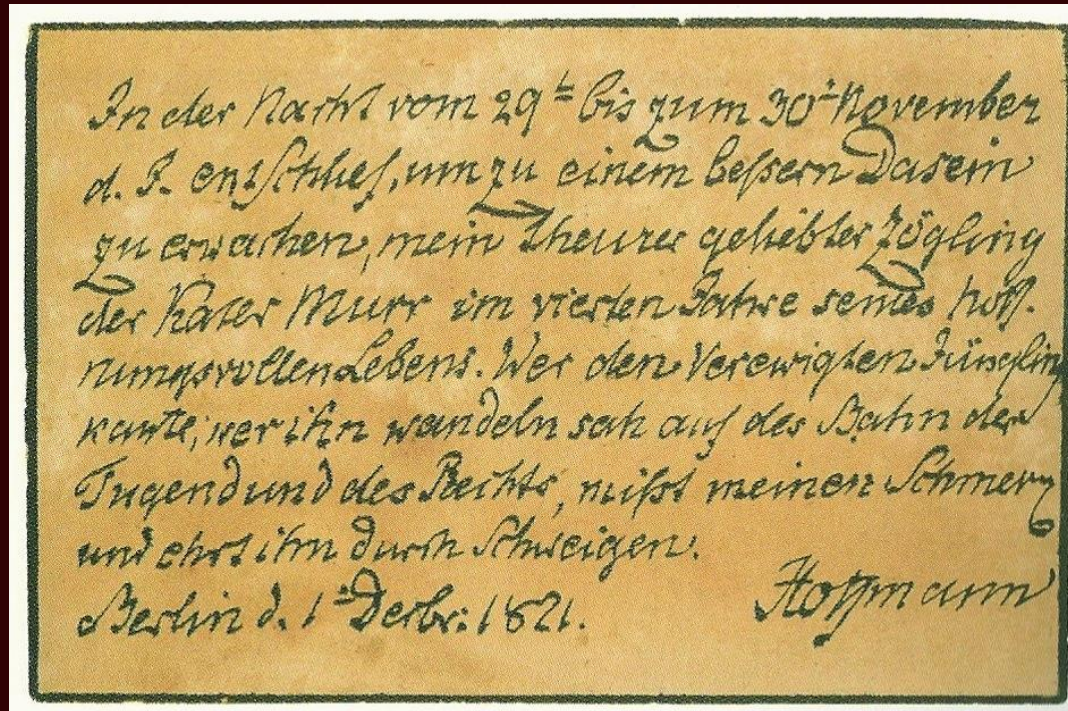 In der Nacht vom 29t bis zum 30t November
d. J. entschlief, um zu einem beßern Dasein
zu erwachen, mein theurer geliebter Zögling
der Kater Murr im vierten Jahre seines hoff-
nungsvollen Lebens. Wer den Verewigten Jüngling
kannte, wer ihn wandeln sah auf der Bahn der
Tugend und des Rechts, mißt meinen Schmerz
und ehrt ihn durch Schweigen.
Berlin d. 1t Decbr: 1821. Hoffmann